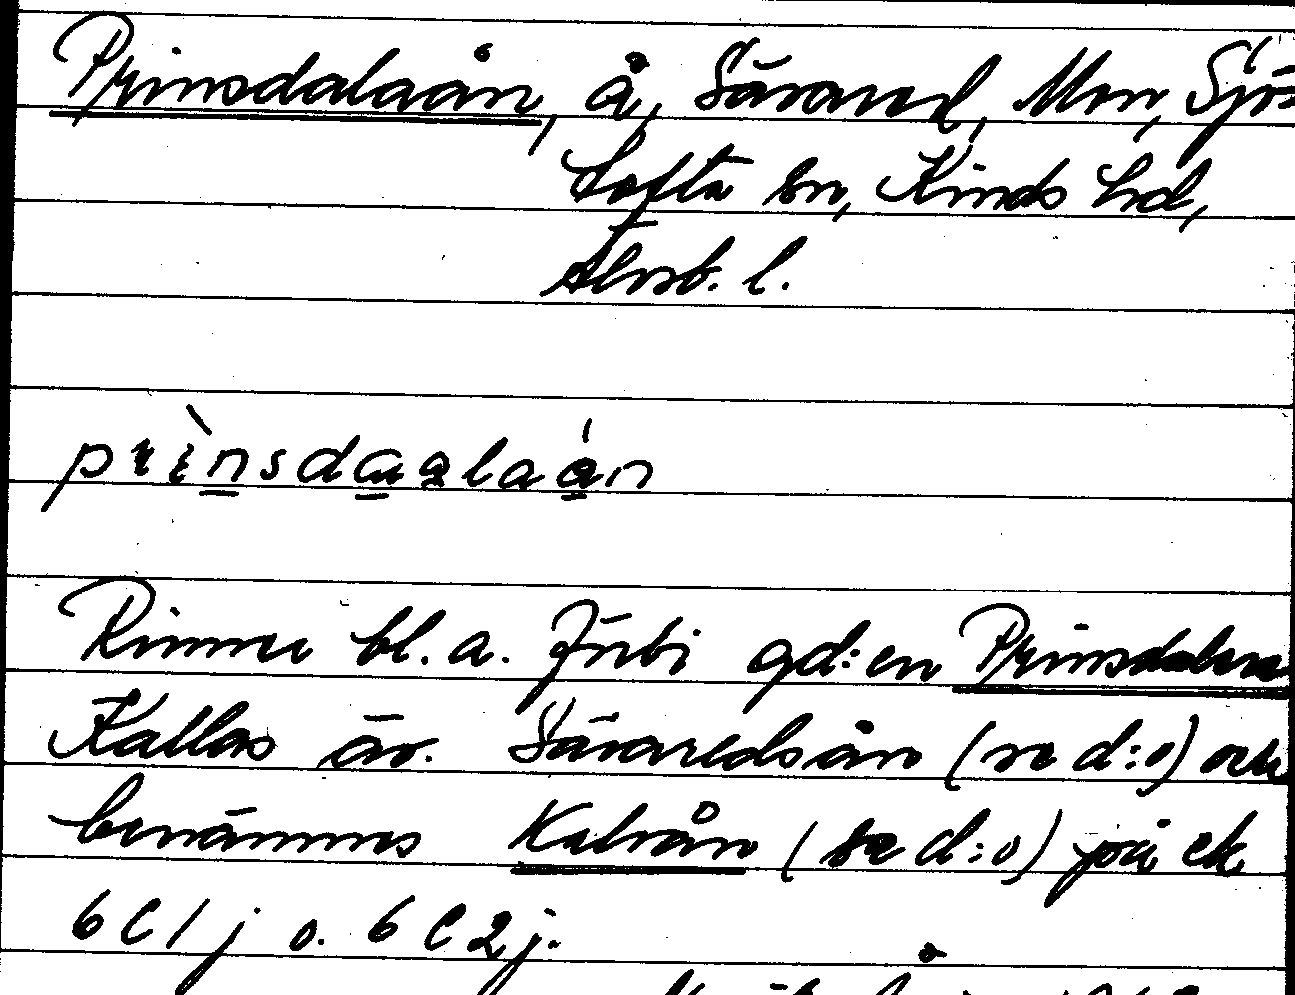 Prinsdalaån, å, Sävared, Mon, Sjö-
tofta sn, Kinds hd,
Älvsb. l.
prinsdaalaån
Rinner bl. a. förbi gd:en Prinsdalen
Kallas äv. Sävaredsån (se d:o) och
benämnes Kalvån (se d:o) på ek
6C1j o. 6C2j.